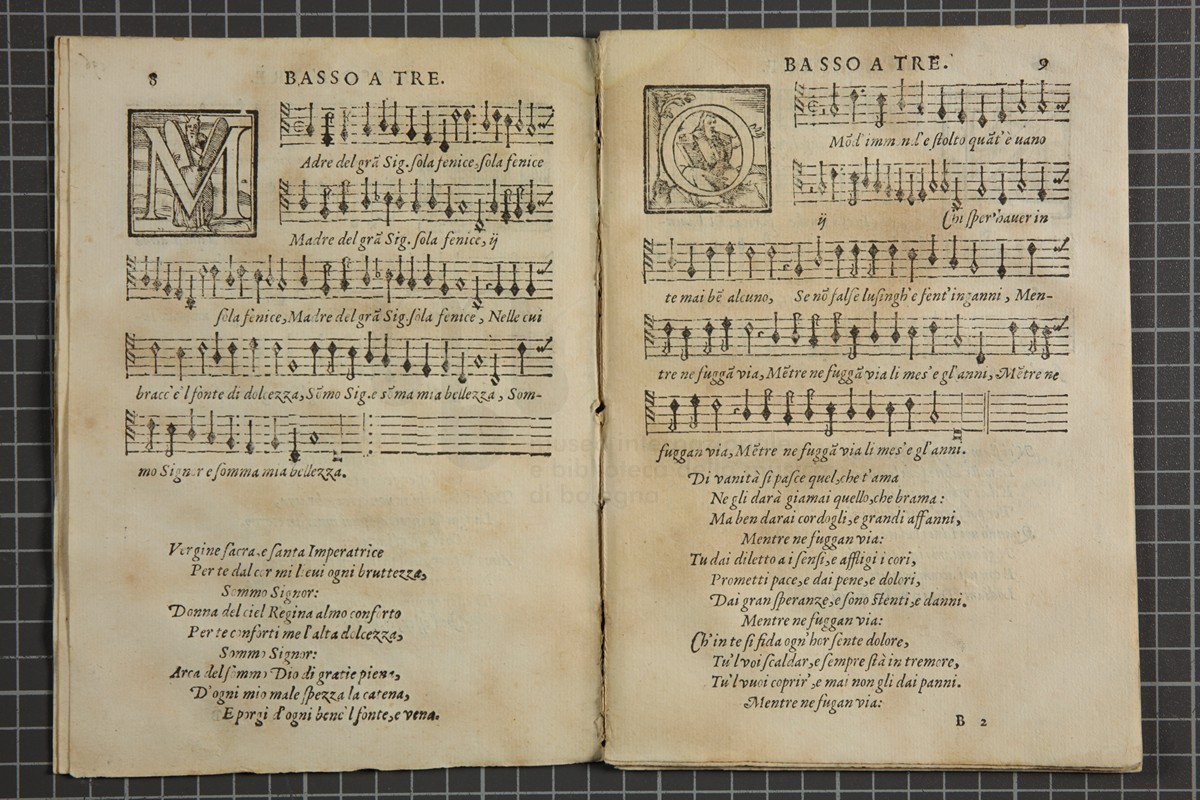 8
BASSO A TRE.
M
Adre del grã Sig. sola fenice, sola fenice
Madre del grã Sig. sola fenice, ij
sola fenice, Madre del grã Sig. sola fenice, Nelle cui
bracc'è 'l fonte di dolcezza, Sõmo Sig. e sõma mia bellezza, Som-
mo Signor e somma mia bellezza.
Vergine sacra, e santa Imperatrice
Per te dal cor mi lieui ogni bruttezza,
Sommo Signor:
Donna del ciel Regina almo conforto
Per te conforti me l'alta dolcezza,
Sommo Signor:
Arca del sommo Dio di gratie piena,
D'ogni mio male spezza la catena,
E porgi d'ogni bene'l fonte, e vena.
BASSO A TRE.
9
O
Mõd'immõd'e stolto quãt'è uano
ij Chi sper'hauer in
te mai bẽ alcuno, Se nõ false lusingh'e sent'inganni, Men-
tre ne fuggã via, Mẽtre ne fuggã via li mes'e gl'anni, Mẽtre ne
fuggan via, Mẽtre ne fuggã via li mes'e gl'anni.
Di vanità si pasce quel, che t'ama
Ne gli darà giamai quello, che brama:
Ma ben darai cordogli, e grandi affanni,
Mentre ne fuggan via:
Tu dai diletto a i sensi, e affligi i cori,
Prometti pace, e dai pene, e dolori,
Dai gran speranze, e sono stenti, e danni.
Mentre ne fuggan via:
Ch'in te si fida ogn'hor sente dolore,
Tu'l voi scaldar, e sempre stà in tremore,
Tu'l vuoi coprir', e mai non gli dai panni.
Mentre ne fugan via:
B 2
museo
e biblioteca
di bologna